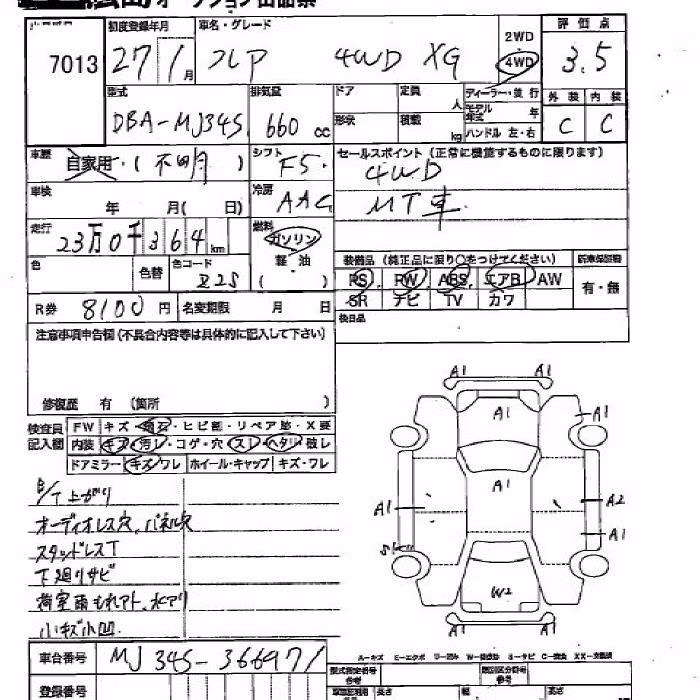 オークション出品票
7013
初度登録年月 車名・グレード 2WD 評価点
27 1月 フレア 4WD XG 4WD 3.5
型式 排気量 ドア 定員 人 ディーラー・並行 外装 内装
DBA-MJ34S 660cc 形状 積載 kg モデル年式 年 C C
ハンドル 左・右
車歴 自家用・(不明) シフト F5 セールスポイント(正常に機能するものに限ります)
4WD
車検 年 月( 日) 冷房 AAC MT車
走行 23万0千364km 燃料 ガソリン 軽油 ( )
装備品(純正品に限り○をつけてください) 新車保証書
色 色替 色コード Z2S PS PW ABS エアB AW 有・無
SR ナビ TV カワ
R券 8100円 名変期限 月 日 検日品
注意事項申告欄(不具合内容等は具体的に記入して下さい)
修復歴 有(箇所 )
検査員記入欄 FW キズ・飛石・ヒビ割・リペア跡・X要
内装 キズ・汚レ・コゲ・穴・スレ・ヘタリ・破レ
ドアミラー キズ・ワレ ホイール・キャップ キズ・ワレ
A1 A1
A1 A1
A1
A1 A2
A1
W2
A1 A1
B/T上がり
オーディオレス穴、パネル欠
スタッドレスT
下廻リサビ
荷室雨もれアト、水アリ
小キズ小凹
A=キズ E=エクボ U=凹み W=補修跡 S=サビ C=腐食 XX=交換済
車台番号 MJ34S-366971
登録番号
型式指定番号 参考 類別区分番号 参考
長さ 幅 高さ